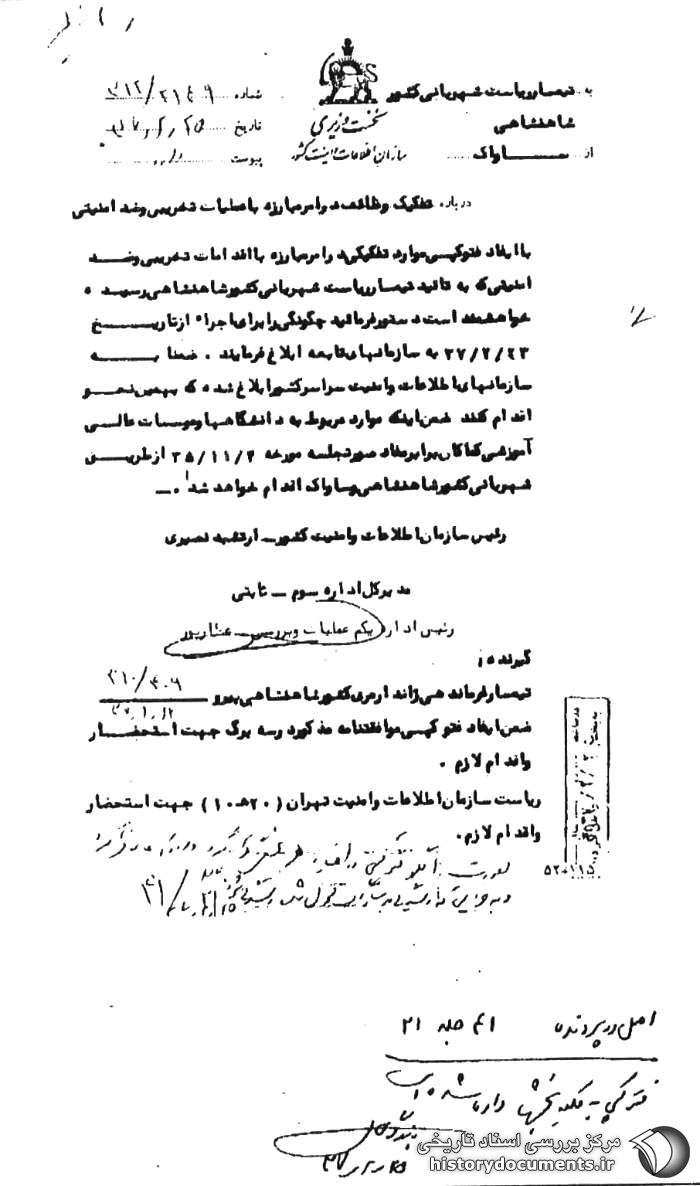 به تیمسار ریاست شهربانی کشور شماره ۳۱۲/۲۱۴۹
شاهنشاهی نخست وزیری تاریخ
از ساواک سازمان اطلاعات و امنیت کشور پیوست
درباره تفکیک وظائف در امر مبارزه با عملیات تخریبی و ضد امنیتی
با ایفاد فتوکپی موارد تفکیکی در امر مبارزه با اقدامات تخریبی و ضد
امنیتی که به تائید تیمسار ریاست شهربانی کشور شاهنشاهی رسیده
خواهشمند است دستور فرمائید چگونگی را برای اجراء از تاریخ
۳۷/۲/۲۳ به سازمانهای تابعه ابلاغ فرمایند . ضمنا به
سازمانهای اطلاعات و امنیت سراسر کشور ابلاغ شده که بهمین نحو
اقدام کنند ضمن اینکه موارد مربوط به دانشگاهها و موسسات عالی
آموزشی کماکان برابر مفاد صورتجلسه مورخه ۳۵/۱۱/۴ از طریق
شهربانی کشور شاهنشاهی و ساواک اقدام خواهد شد .
رئیس سازمان اطلاعات و امنیت کشور ـ ارتشبد نصیری
مدیر کل اداره سوم ـ ثابتی
رئیس اداره یکم عملیات و بررسی ـ عطارپور
گیرنده :
تیمسار فرماندهی ژاندارمری کشور شاهنشاهی پیرو ۳۱۰/۴۰۹
ضمن ایفاد فتوکپی موافقتنامه مذکور در سه برگ جهت استحضار
و اقدام لازم .
ریاست سازمان اطلاعات و امنیت تهران ( ۲۰ هـ ۱۰ ) جهت استحضار
و اقدام لازم .
۵۲۰۱۱۵
اصل در پرونده ۲۱ جلد
فتوکپی به کلیه بخشها داده شد
مرکز بررسی اسناد تاریخی
historydocuments.ir